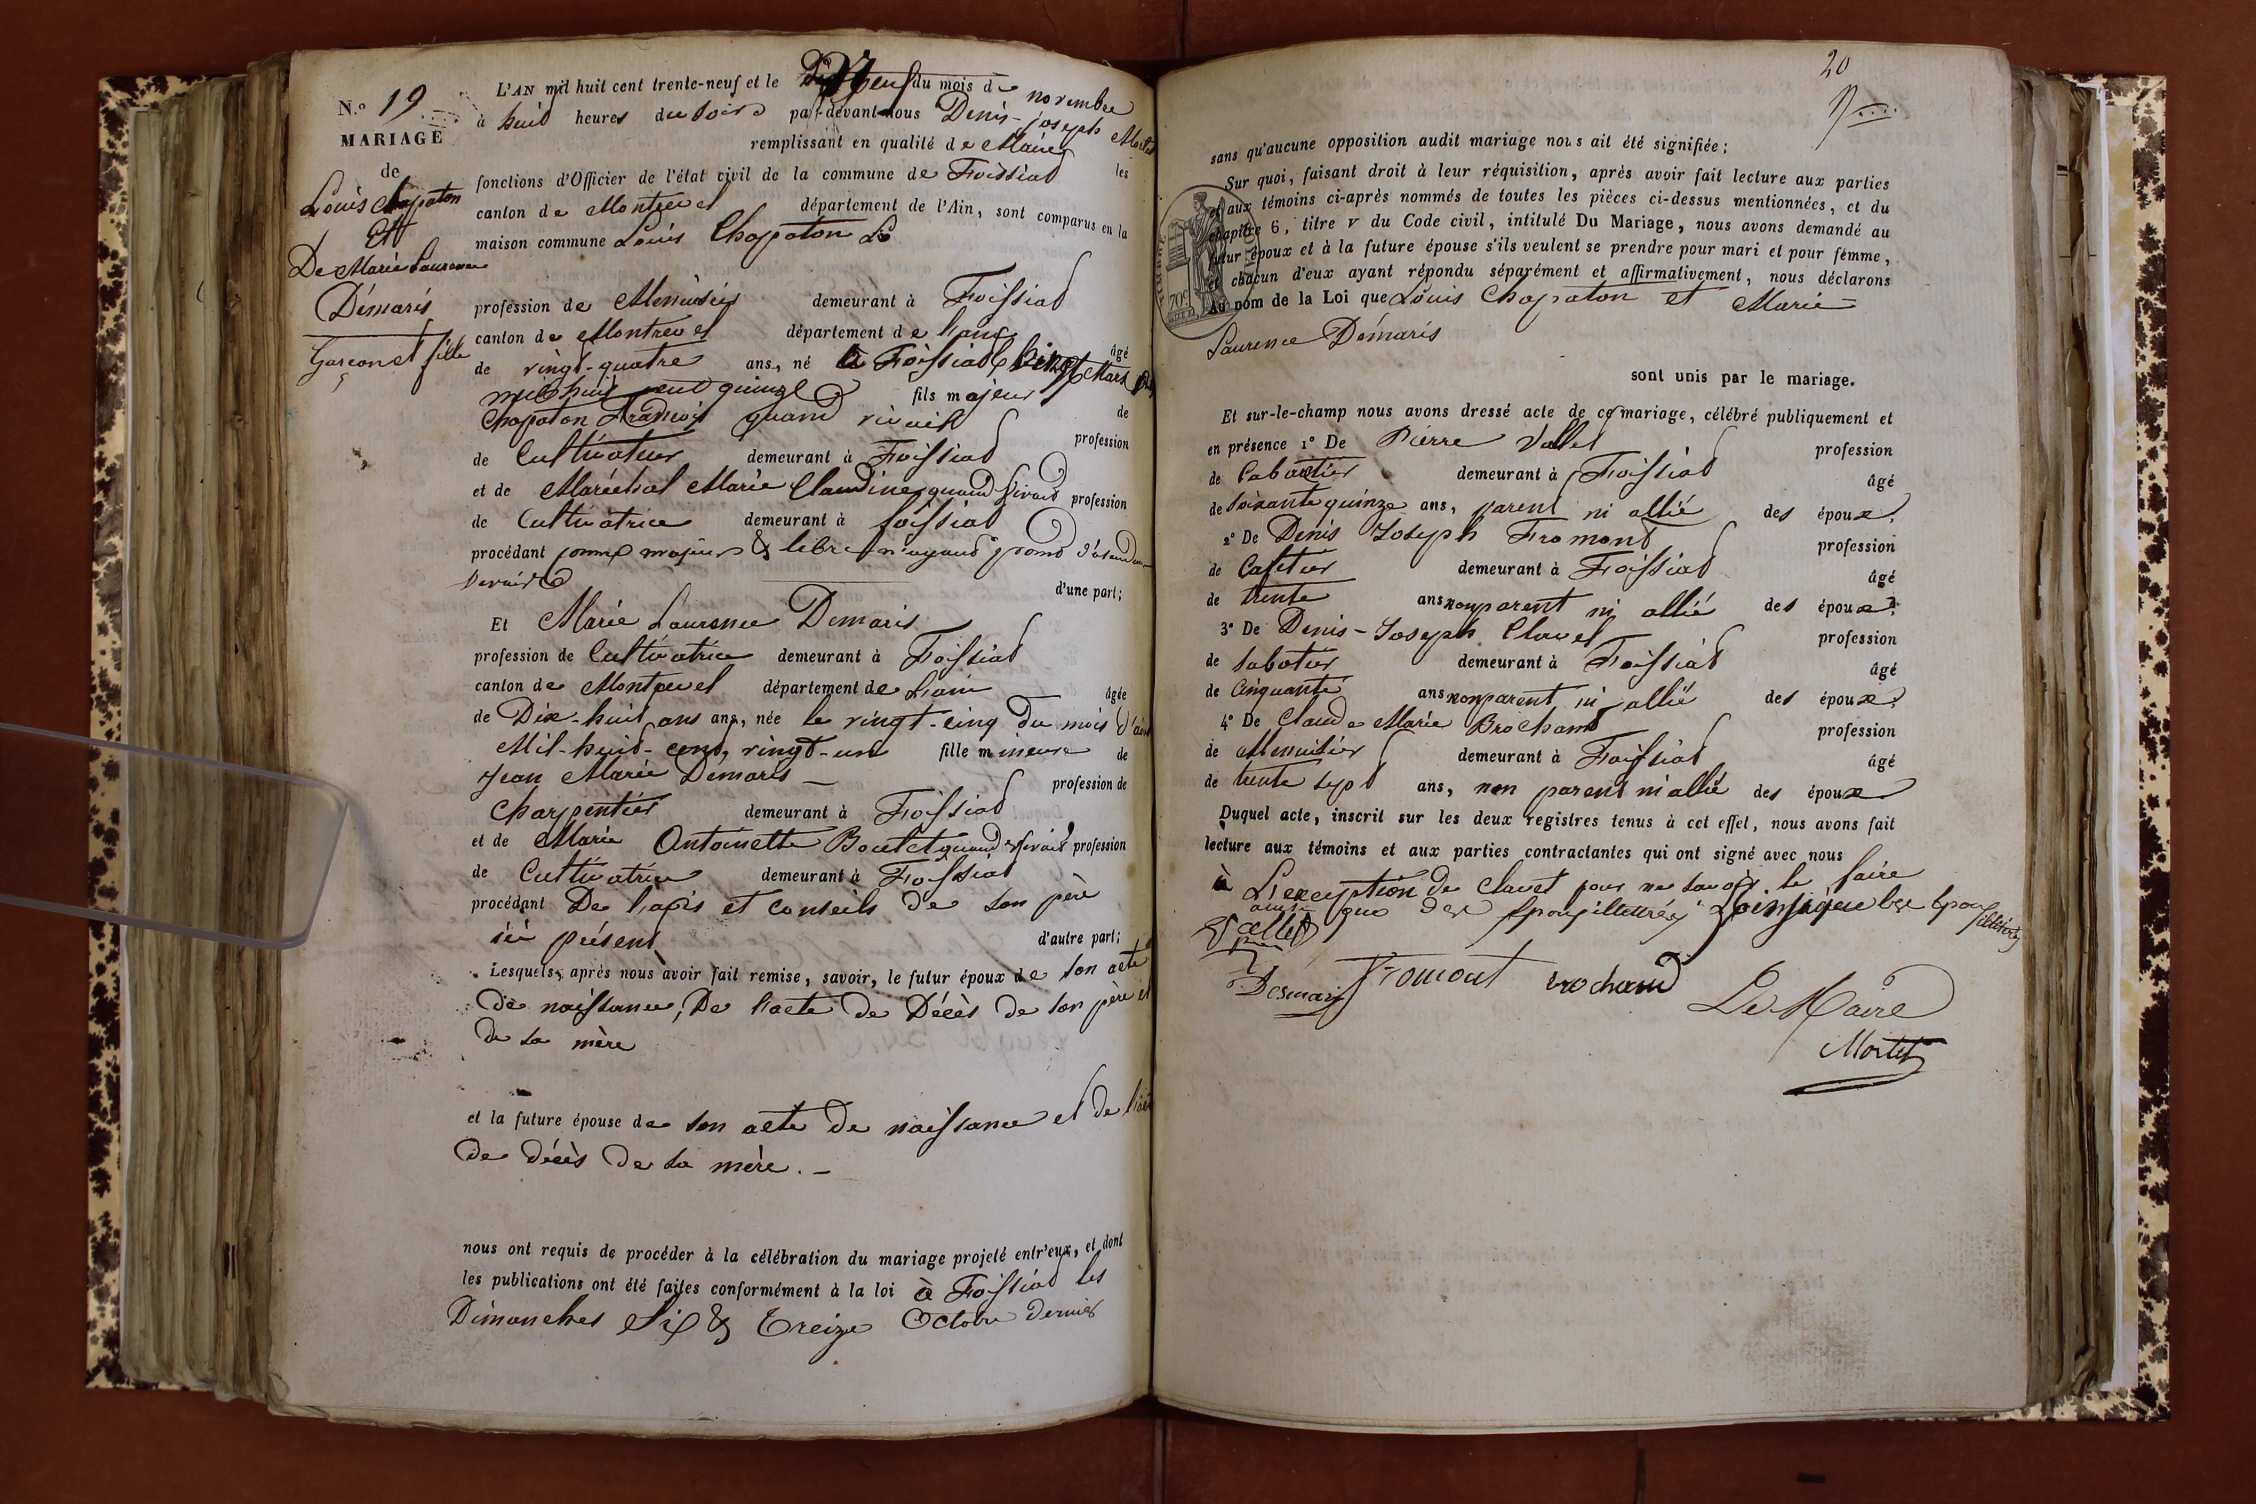 N.º 19
MARIAGE
de
Louis Chapaton
Et
De Marie Laurence
Démaris
Garçon et fille
L'AN mil huit cent trente-neuf et le neuf du mois de novembre
à huit heures du soir par-devant nous Denis-joseph Mortet
remplissant en qualité de Maire les
fonctions d'Officier de l'état civil de la commune de Foissiat
canton de Montrevel département de l'Ain, sont comparus en la
maison commune Louis Chapaton
profession de Menuisier demeurant à Foissiat
canton de Montrevel département de l'ain âgé
de vingt-quatre ans, né à Foissiat le vingt Mars
mil huit cent quinze fils majeur de
Chapaton François quand vivait profession
de Cultivateur demeurant à Foissiat
et de Maréchal Marie Claudine, quand vivait profession
de Cultivatrice demeurant à foissiat
procédant comme majeur & libre n'ayant
d'une part;
Et Marie Laurence Demaris
profession de Cultivatrice demeurant à Foissiat
canton de Montrevel département de L'ain âgée
de Dix-huit ans ans, née le vingt-cinq du mois
Mil-huit-cent, vingt-un fille mineure de
Jean Marie Démaris profession de
Charpentier demeurant à Foissiat
et de Marie Antoinette Boulet quand vivait profession
de Cultivatrice demeurant à Foissiat
procédant De l'avis et conseils de son père
ici présent d'autre part;
Lesquels, après nous avoir fait remise, savoir, le futur époux de son acte
de naissance, De l'acte de Décès de son père et
de sa mère
et la future épouse de son acte de naissance et de l'acte
de décès de sa mère. —
nous ont requis de procéder à la célébration du mariage projeté entr'eux, et dont
les publications ont été faites conformément à la loi à Foissiat les
Dimanches Six & Treize Octobre dernier
20
sans qu'aucune opposition audit mariage nous ait été signifiée;
Sur quoi, faisant droit à leur réquisition, après avoir fait lecture aux parties
et aux témoins ci-après nommés de toutes les pièces ci-dessus mentionnées, et du
chapitre 6, titre V du Code civil, intitulé Du Mariage, nous avons demandé au
futur époux et à la future épouse s'ils veulent se prendre pour mari et pour femme,
et chacun d'eux ayant répondu séparément et affirmativement, nous déclarons
Au nom de la Loi que Louis Chapaton et Marie
Laurence Démaris
sont unis par le mariage.
Et sur-le-champ nous avons dressé acte de ce mariage, célébré publiquement et
en présence 1º De Pierre Vallet profession
de Cabaretier demeurant à Foissiat âgé
de Soixante quinze ans, parent ni allié des époux.
2º De Denis Joseph Fromont profession
de Cafetier demeurant à Foissiat âgé
de trente ans non parent ni allié des époux.
3º De Denis-Joseph Clavel profession
de Sabotier demeurant à Foissiat âgé
de Cinquante ans non parent ni allié des époux.
4º De Claude Marie Brochand profession
de Menuisier demeurant à Foissiat âgé
de trente sept ans, non parent ni allié des époux
Duquel acte, inscrit sur les deux registres tenus à cet effet, nous avons fait
lecture aux témoins et aux parties contractantes qui ont signé avec nous
à L'exception de Clavel pour ne savoir le faire
ainsi que des Epoux illettrés
Vallet
Desmaris Fromont brochand
Le Maire
Mortet